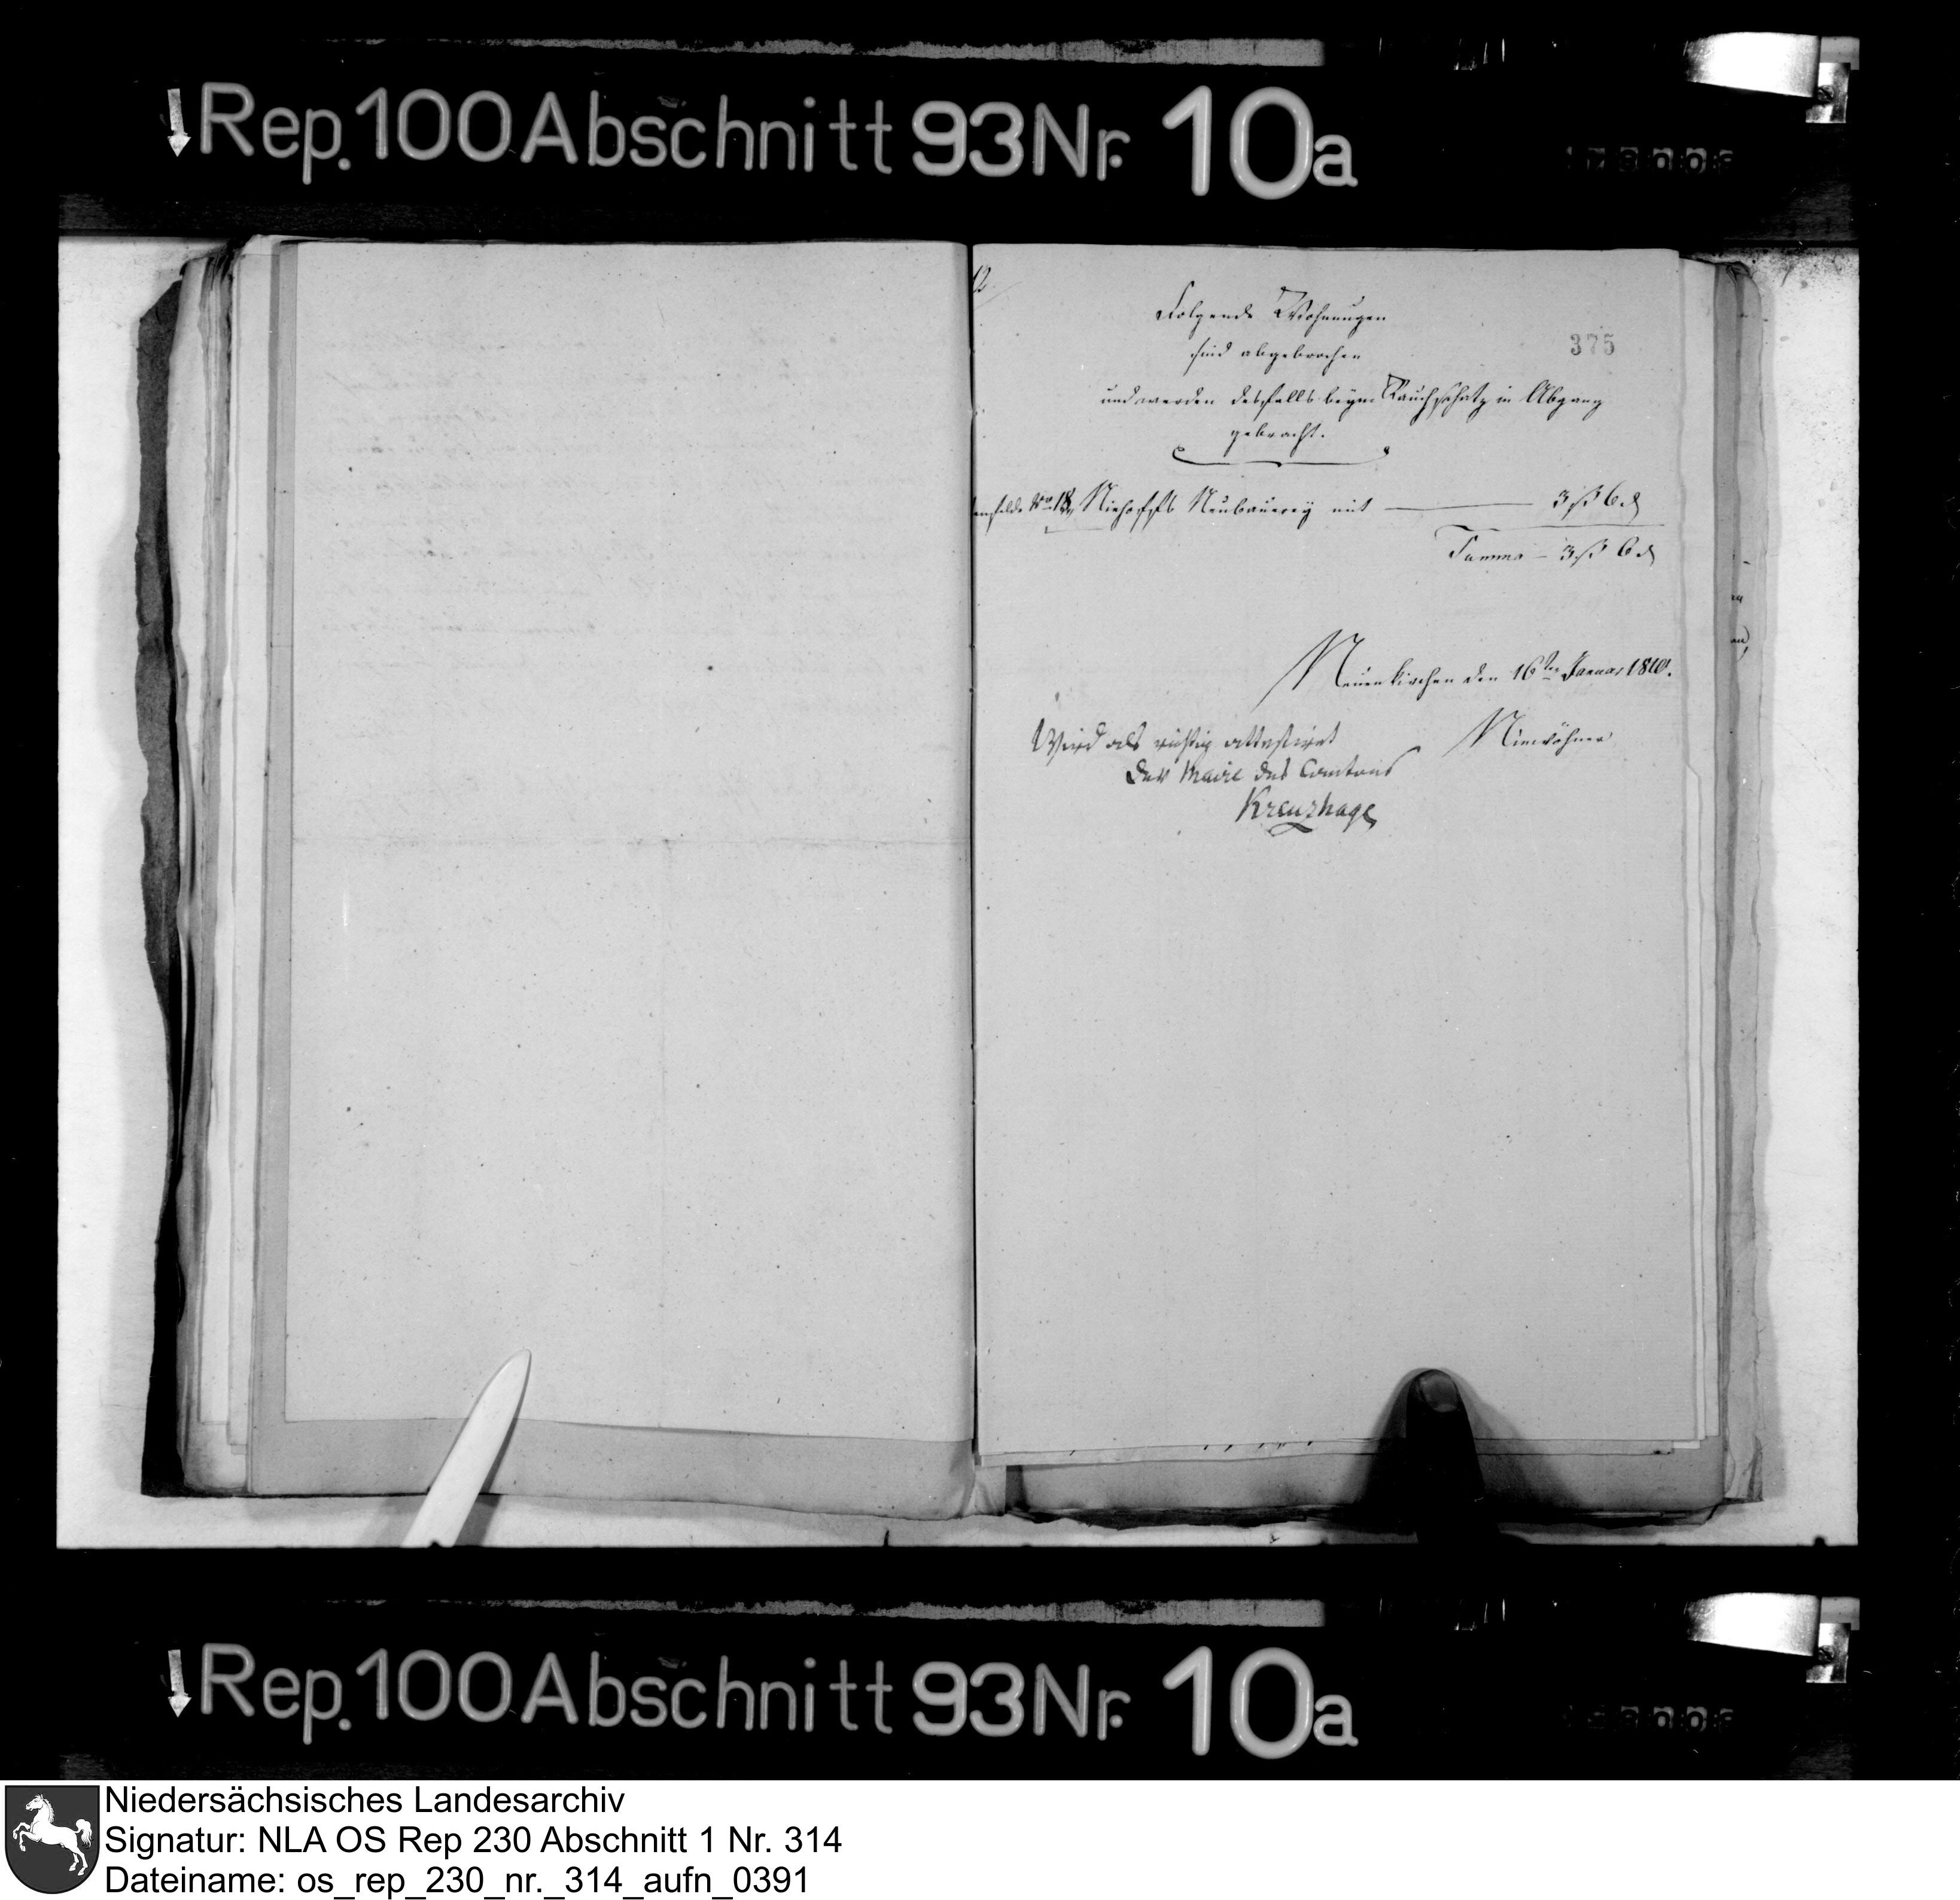 Rep. 100 Abschnitt 93 Nr. 10a
Folgende Wohnungen
375
sind abgebrochen
und werden desfalls beym Rauchschatz in Abgang
gebracht.
No 18, Niehoffs Neubauerey mit — 3 ß 6 d
Summa — 3 ß 6 d
Neuenkirchen den 16ten Januar 1810.
Wird als richtig attestirt
Niewöhner
Der Maire des Cantons
Kreuzhage
Rep. 100 Abschnitt 93 Nr. 10a
Niedersächsisches Landesarchiv
Signatur: NLA OS Rep 230 Abschnitt 1 Nr. 314
Dateiname: os_rep_230_nr._314_aufn_0391